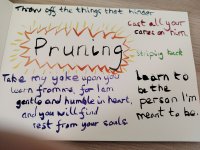 Throw off the things that hinder
cast all your
cares on him.
Pruning
striping back
Take my yoke upon you
learn from me, for I am
gentle and humble in heart,
and you will find
rest from your souls.
Learn to
be the
person I'm
meant to be.